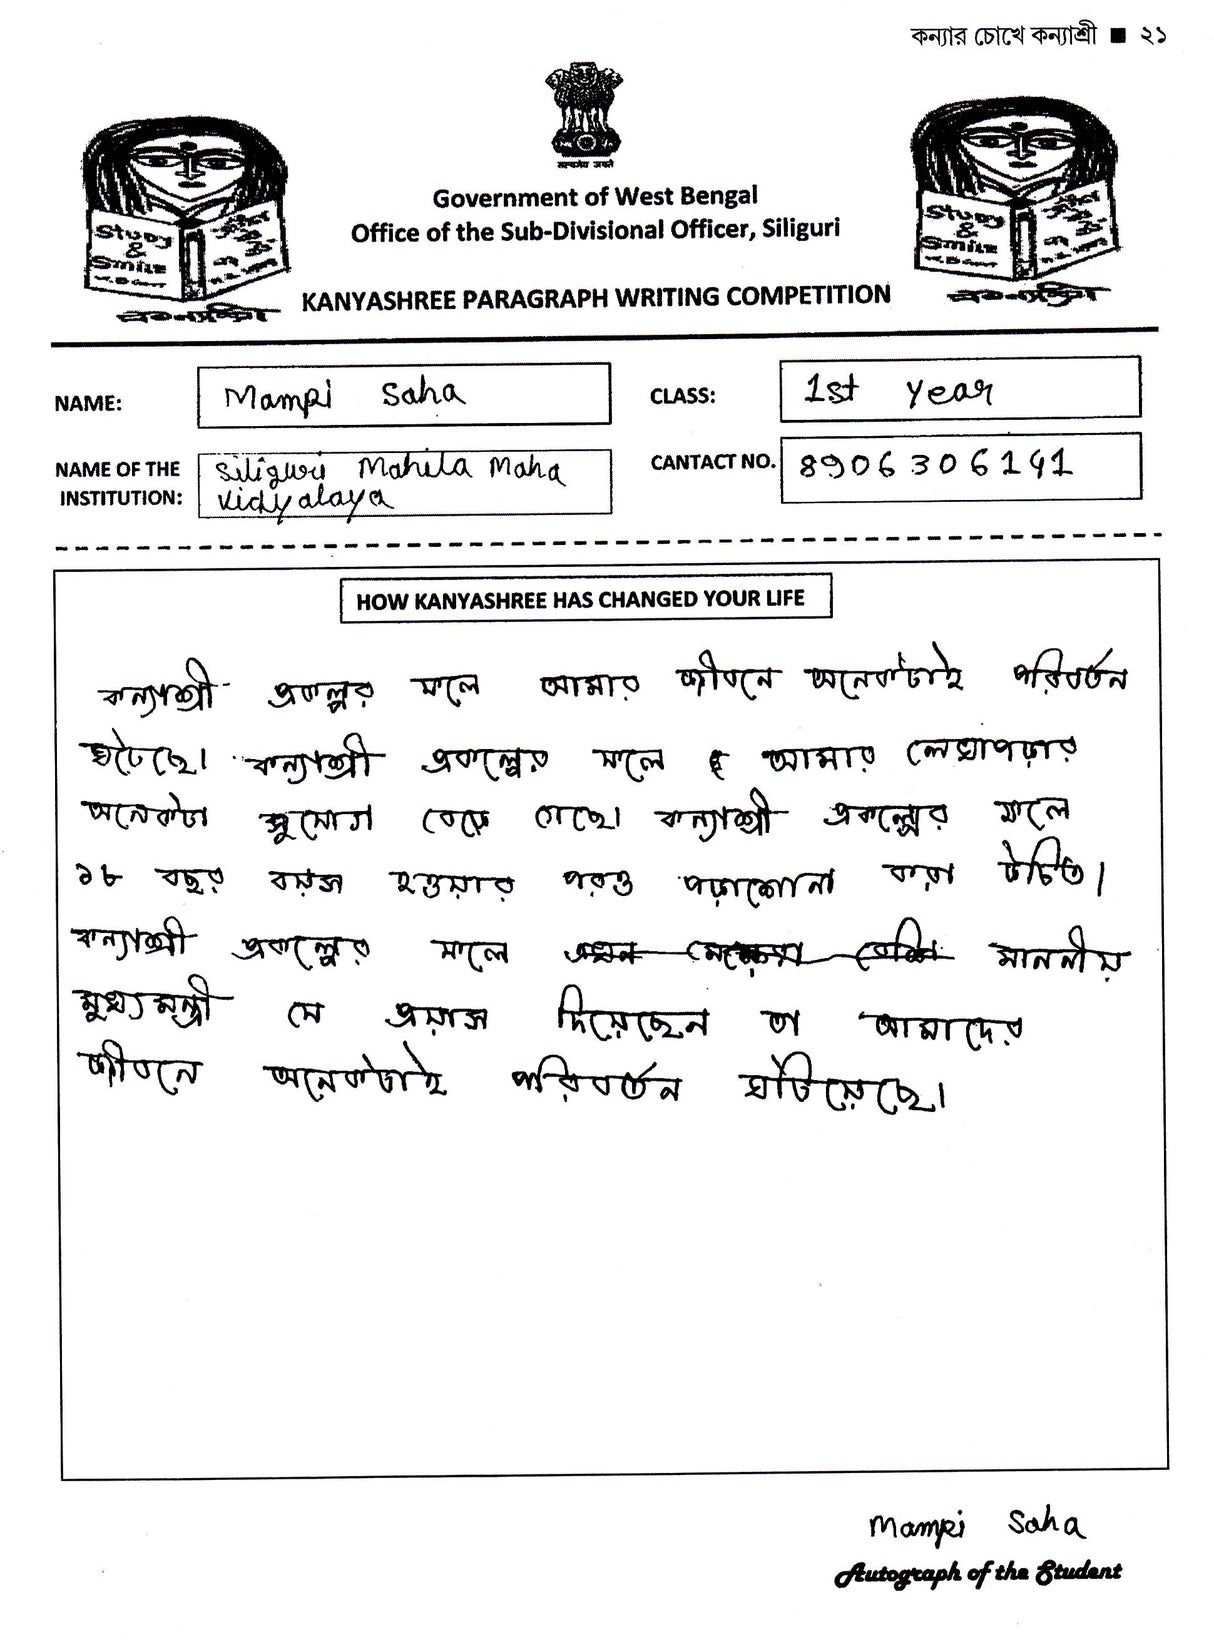 কন্যার চোখে কন্যাশ্রী ■ ২১
सत्यमेव जयते
Government of West Bengal
Office of the Sub-Divisional Officer, Siliguri
KANYASHREE PARAGRAPH WRITING COMPETITION
Study
&
Smile
Study
&
Smile
NAME: Mampi Saha
CLASS: 1st Year
NAME OF THE INSTITUTION: Siliguri Mahila Maha
Vidyalaya
CANTACT NO. 8906306141
HOW KANYASHREE HAS CHANGED YOUR LIFE
কন্যাশ্রী প্রকল্পর ফলে আমার জীবনে অনেকটাই পরিবর্তন
ঘটেছে। কন্যাশ্রী প্রকল্পের ফলে আমার লেখাপড়ার
অনেকটা সুযোগ বেড়ে গেছে। কন্যাশ্রী প্রকল্পের ফলে
১৮ বছর বয়স হওয়ার পরও পড়াশোনা করা উচিত।
কন্যাশ্রী প্রকল্পের ফলে মাননীয়
মুখ্যমন্ত্রী যে প্রয়াস দিয়েছেন তা আমাদের
জীবনে অনেকটাই পরিবর্তন ঘটিয়েছে।
Mampi Saha
Autograph of the Student